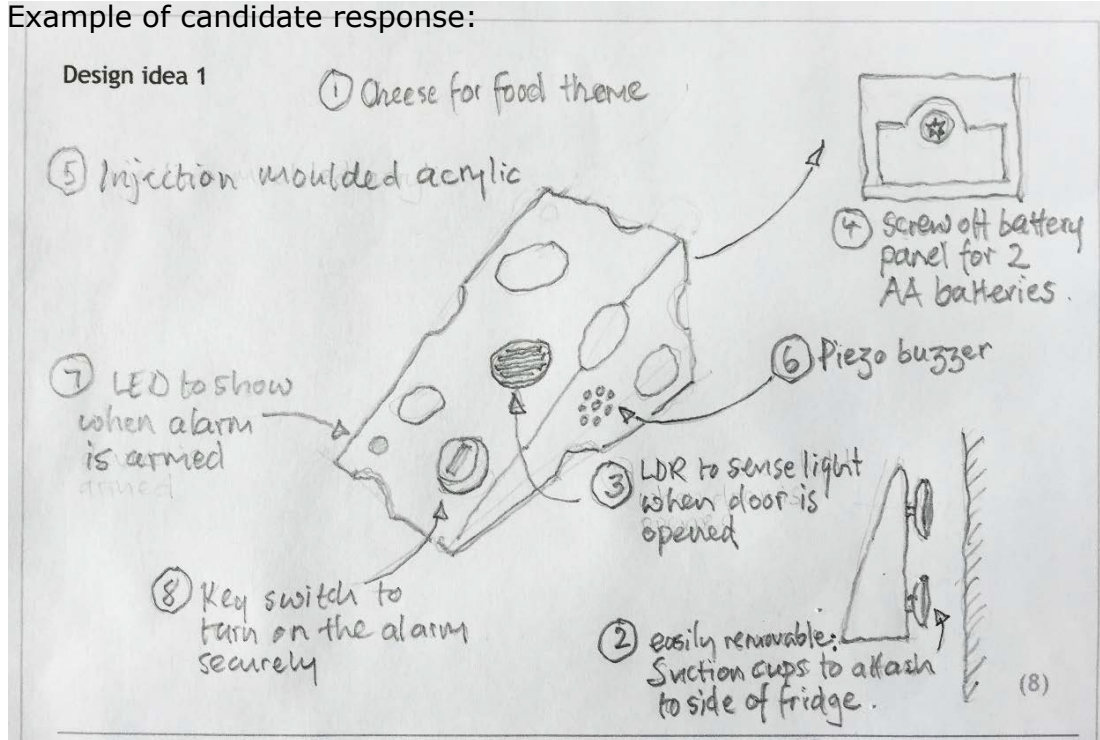 Example of candidate response:
Design idea 1
① Cheese for food theme
⑤ Injection moulded acrylic
④ Screw off battery
panel for 2
AA batteries.
⑦ LED to show
when alarm
is armed
armed
⑥ Piezo buzzer
③ LDR to sense light
when door is
opened
⑧ Key switch to
turn on the alarm
securely
② easily removable:
Suction cups to attach
to side of fridge.
(8)